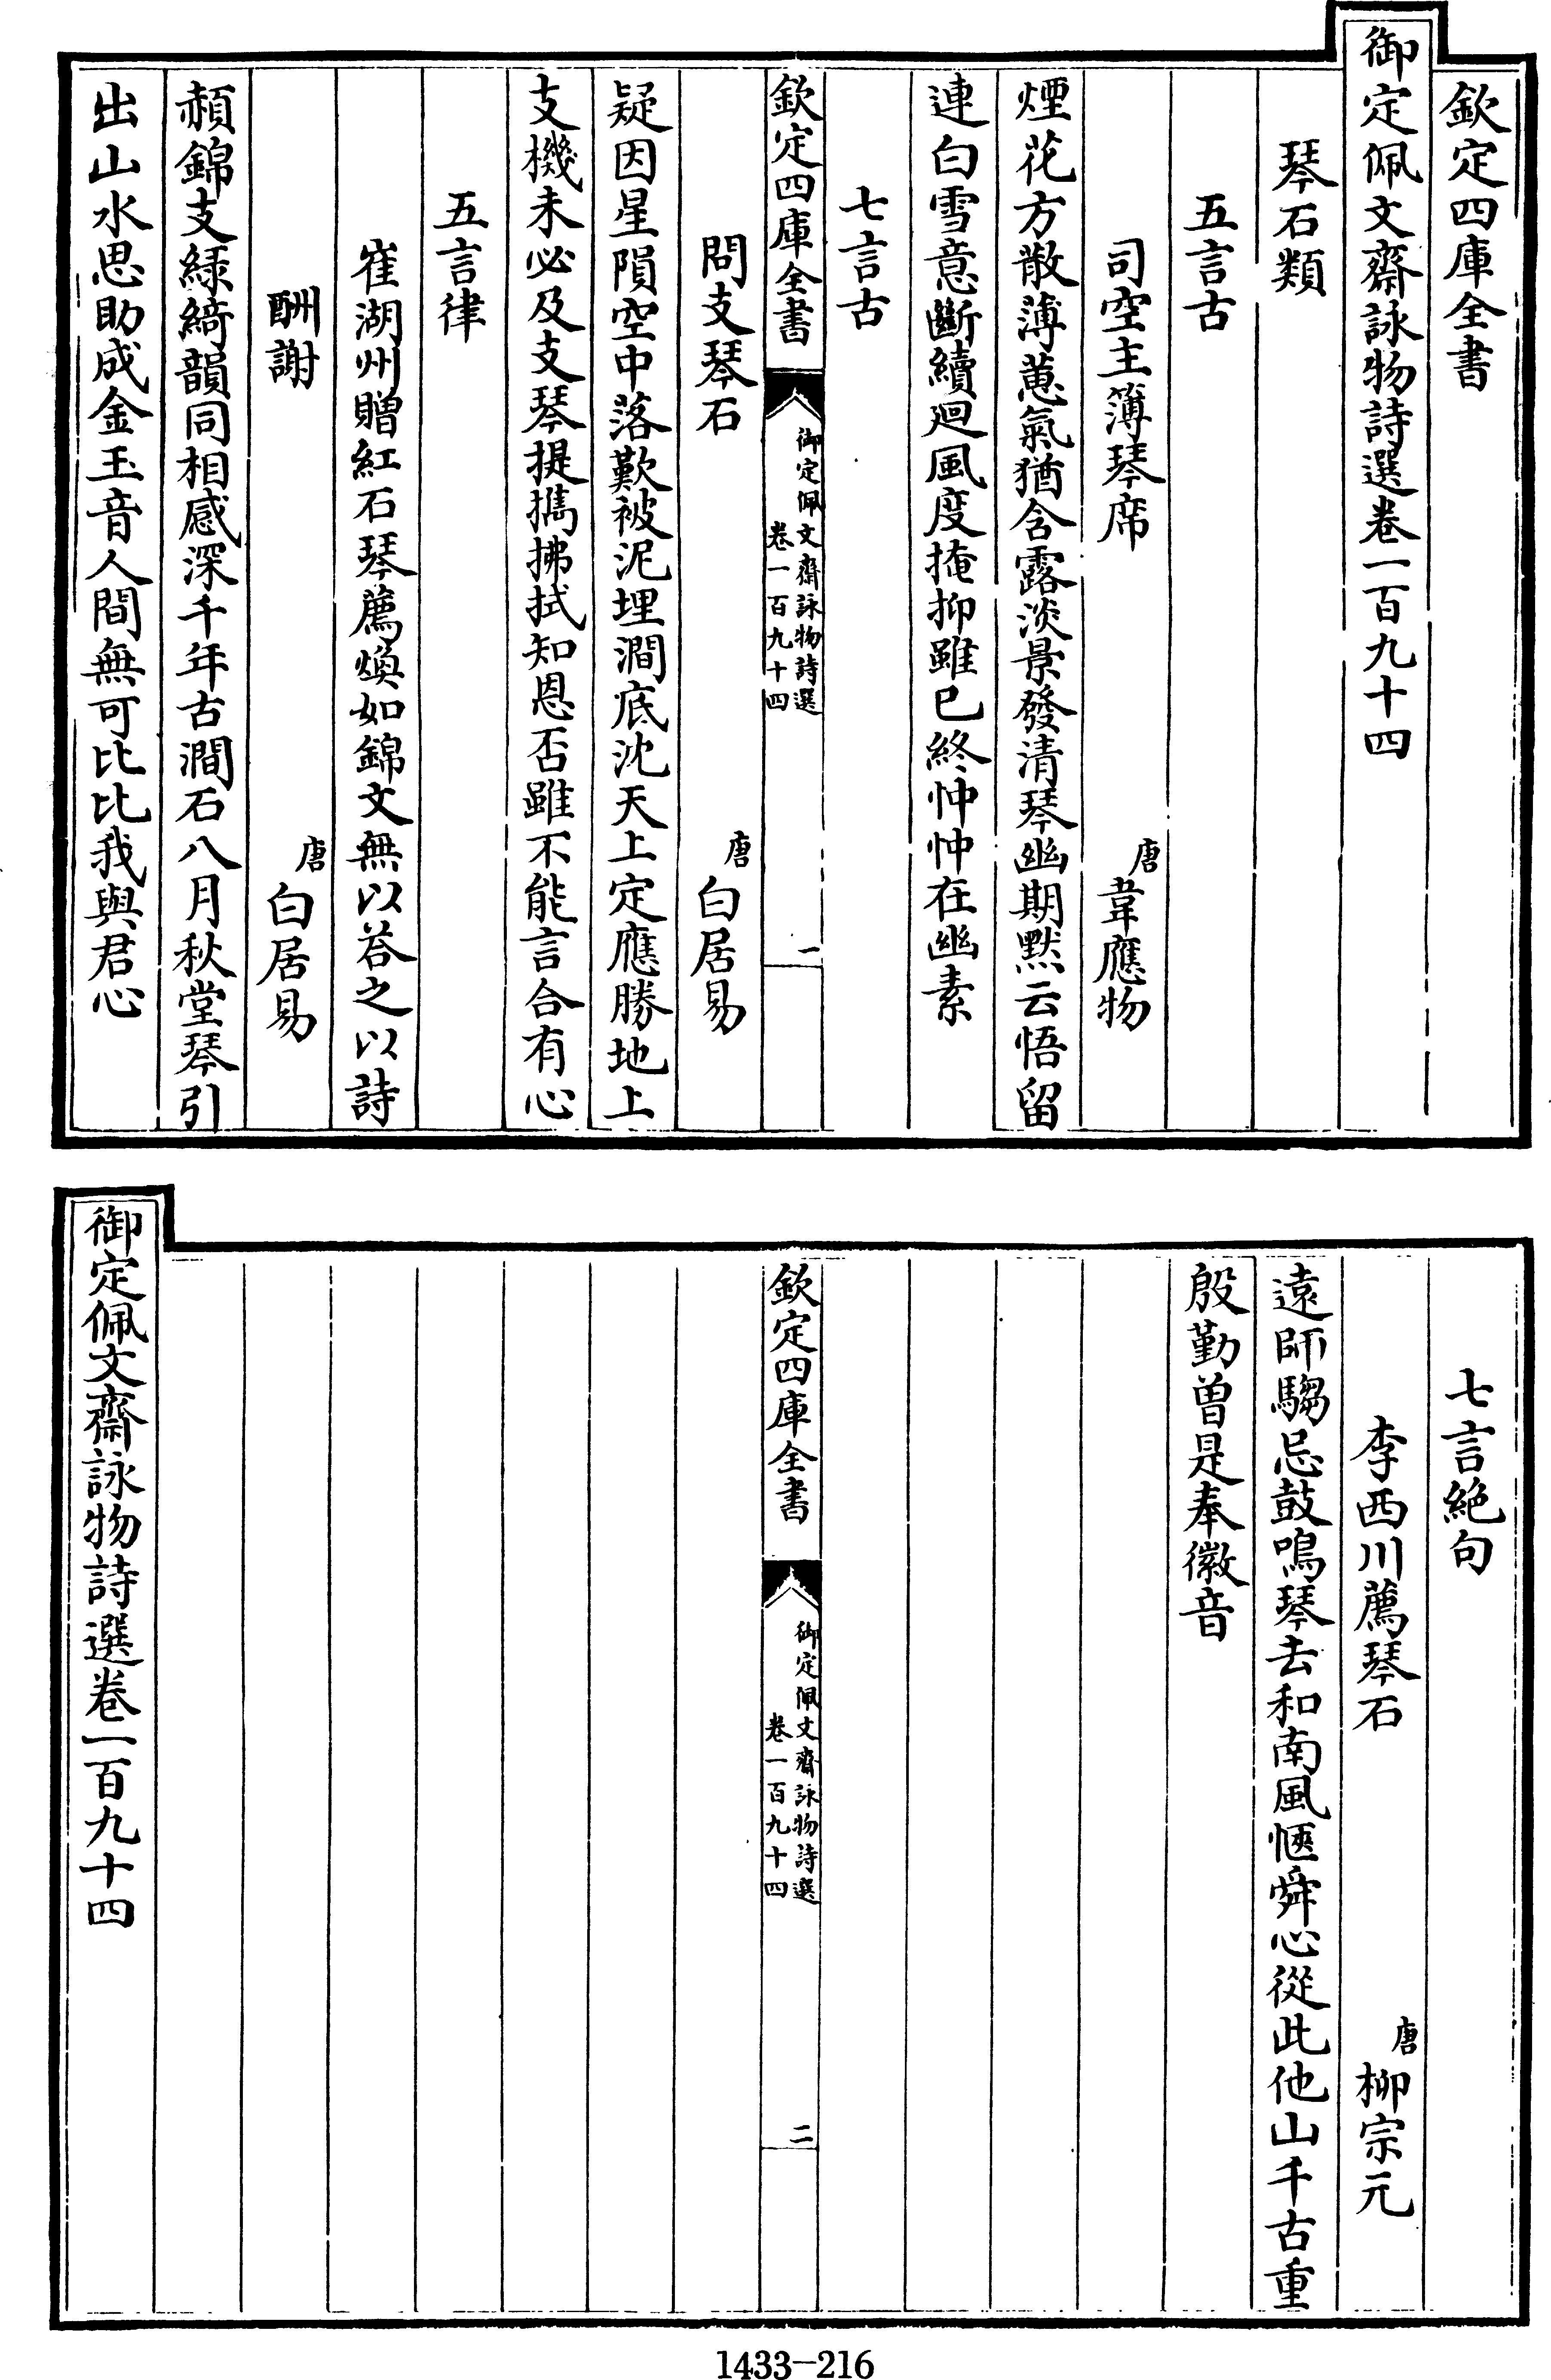 欽定四庫全書
御定佩文齋詠物詩選卷一百九十四
琴石類
五言古
司空主簿琴席 唐 韋應物
煙花方散薄蕙氣猶含露淡景發清琴幽期黙云悟留
連白雪意斷續迴風度掩抑雖已終忡忡在幽素
七言古
欽定四庫全書
御定佩文齋詠物詩選
卷一百九十四
一
問支琴石 唐 白居易
疑因星隕空中落歎被泥埋澗底沈天上定應勝地上
支機未必及支琴提攜拂拭知恩否雖不能言合有心
五言律
崔湖州贈紅石琴薦煥如錦文無以答之以詩
酬謝 唐 白居易
赬錦支緑綺韻同相感深千年古澗石八月秋堂琴引
出山水思助成金玉音人間無可比比我與君心
七言絶句
李西川薦琴石 唐 柳宗元
遠師騶忌鼓鳴琴去和南風愜舜心從此他山千古重
殷勤曾是奉徽音
欽定四庫全書
御定佩文齋詠物詩選
卷一百九十四
二
御定佩文齋詠物詩選卷一百九十四
1433-216